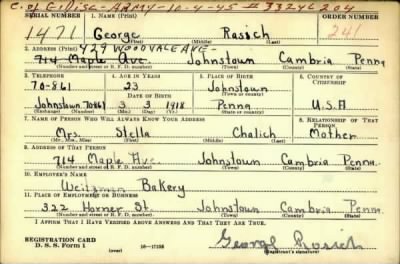 C. of E. Disc. ARMY-10-4-45 # 33246204
SERIAL NUMBER 1. NAME (Print) ORDER NUMBER
1471 George Rasich 241
(First) (Middle) (Last)
2. ADDRESS (Print) 429 WOODVALE AVE-
714 Maple Ave. Johnstown Cambria Penna
(Number and street or R. F. D. number) (Town) (County) (State)
3. TELEPHONE 4. AGE IN YEARS 5. PLACE OF BIRTH 6. COUNTRY OF CITIZENSHIP
70-861 23 Johnstown
DATE OF BIRTH (Town or county)
Johnstown 70861 3 3 1918 Penna U.S.A
(Exchange) (Number) (Mo.) (Day) (Yr.) (State or country)
7. NAME OF PERSON WHO WILL ALWAYS KNOW YOUR ADDRESS 8. RELATIONSHIP OF THAT PERSON
Mrs. Stella Chalich Mother
(Mr., Mrs., Miss) (First) (Middle) (Last)
9. ADDRESS OF THAT PERSON
714 Maple Ave. Johnstown Cambria Penna.
(Number and street or R. F. D. number) (Town) (County) (State)
10. EMPLOYER'S NAME
Weitzman Bakery
11. PLACE OF EMPLOYMENT OR BUSINESS
322 Horner St. Johnstown Cambria Penna
(Number and street or R. F. D. number) (Town) (County) (State)
I AFFIRM THAT I HAVE VERIFIED ABOVE ANSWERS AND THAT THEY ARE TRUE.
REGISTRATION CARD
D. S. S. Form 1 (over) 16-17105 George Rasich
(Registrant's signature)